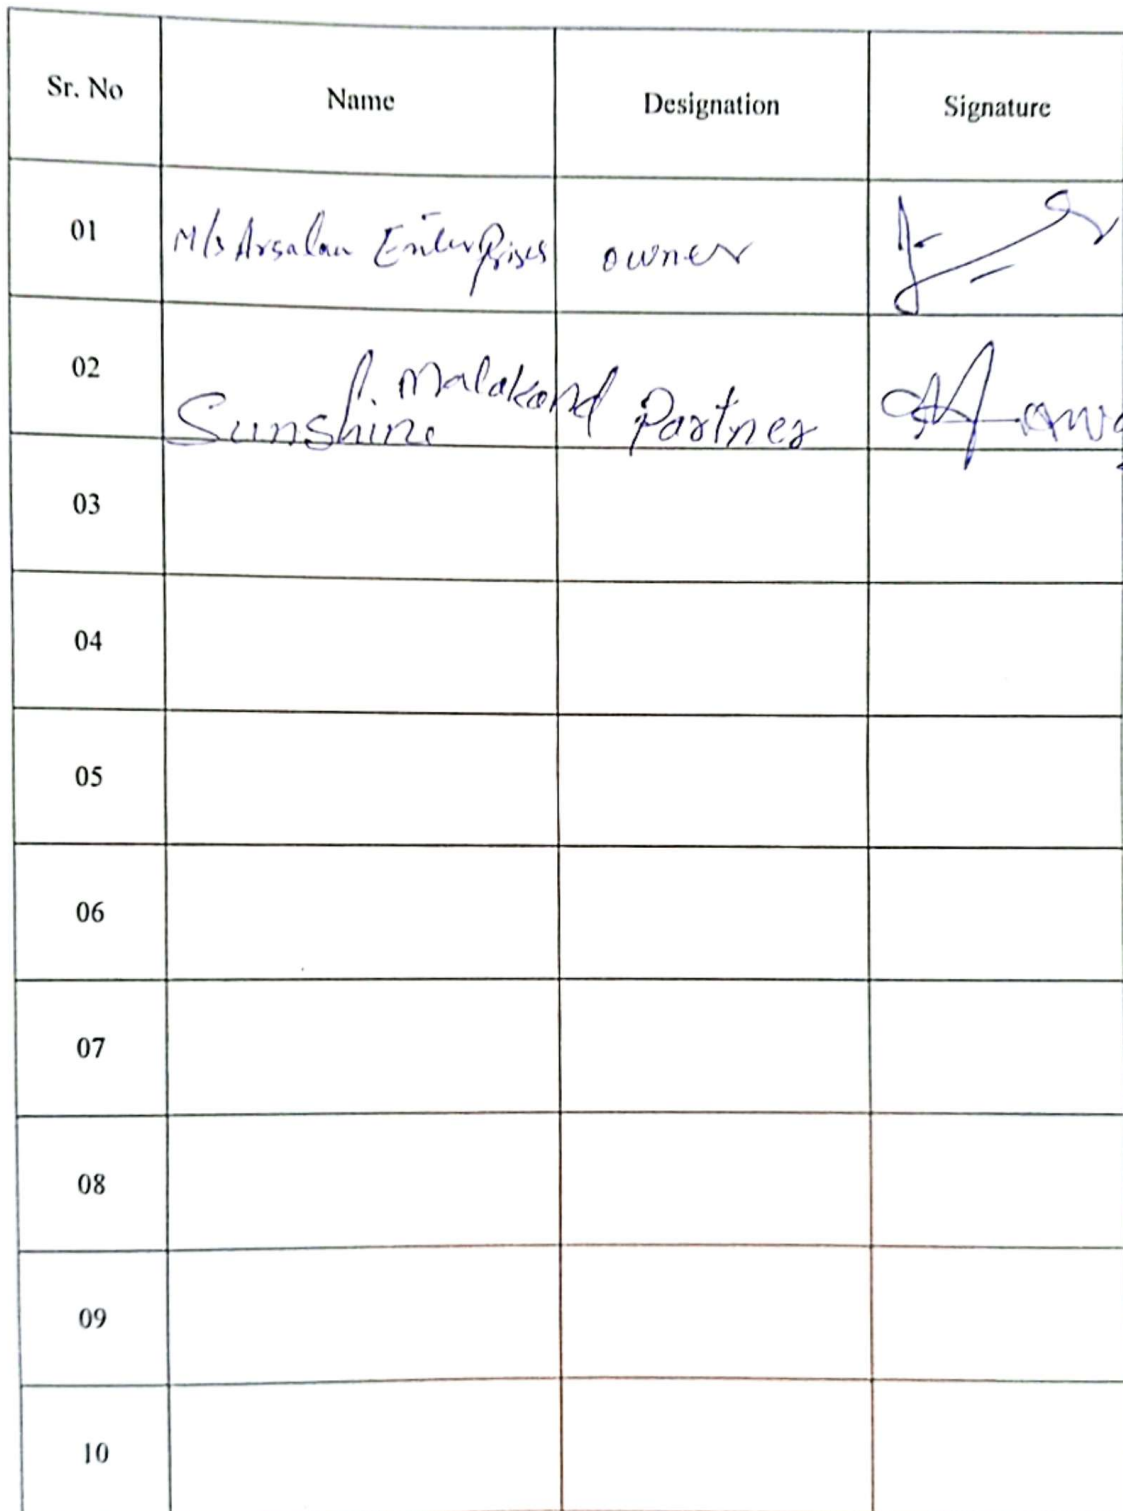 Sr. No Name Designation Signature
01 M/s Arsalan Enterprises owner
02 Sunshine Malakand Partner
03
04
05
06
07
08
09
10